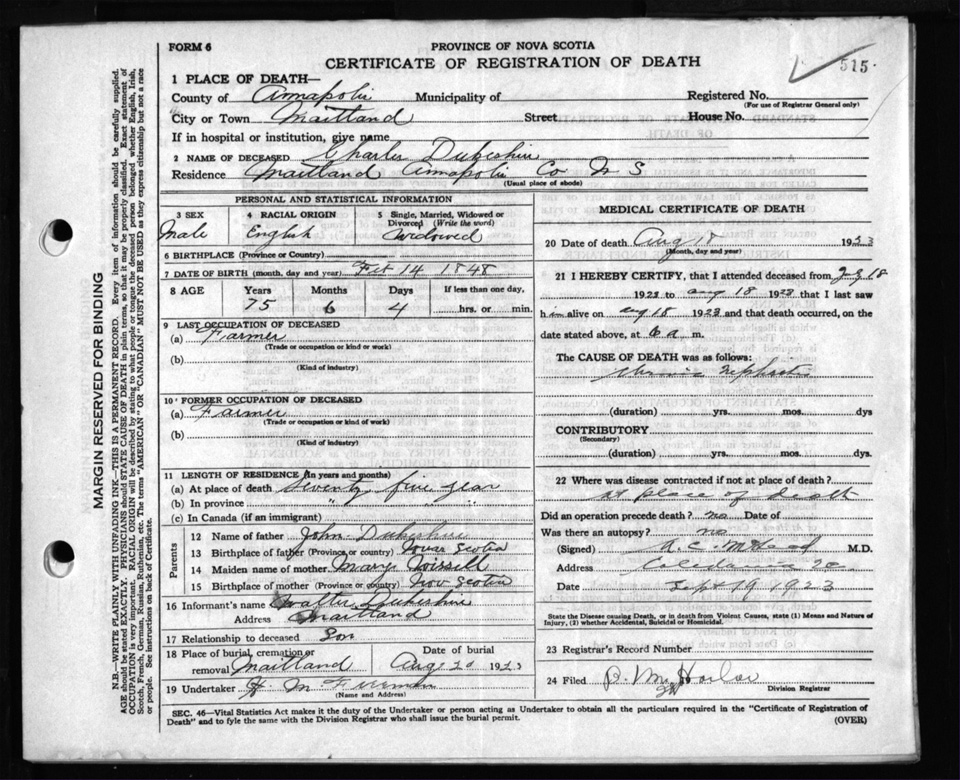 FORM 6
PROVINCE OF NOVA SCOTIA
CERTIFICATE OF REGISTRATION OF DEATH
515
1 PLACE OF DEATH—
County of Annapolis Municipality of
Registered No.
(For use of Registrar General only)
City or Town Maitland Street House No.
If in hospital or institution, give name
2 NAME OF DECEASED Charles Dukeshire
Residence Maitland Annapolis Co N S
(Usual place of abode)
PERSONAL AND STATISTICAL INFORMATION
3 SEX
Male
4 RACIAL ORIGIN
English
5 Single, Married, Widowed or
Divorced (Write the word)
Widowed
6 BIRTHPLACE (Province or Country)
7 DATE OF BIRTH (month, day and year) Feb 14 1848
8 AGE Years Months Days If less than one day,
75 6 4 hrs. or min.
9 LAST OCCUPATION OF DECEASED
(a) Farmer
(Trade or occupation or kind or work)
(b)
(Kind of industry)
10 FORMER OCCUPATION OF DECEASED
(a) Farmer
(Trade or occupation or kind or work)
(b)
(Kind of industry)
11 LENGTH OF RESIDENCE (In years and months)
(a) At place of death Seventy five year
(b) In province " " "
(c) In Canada (if an immigrant)
Parents
12 Name of father John Dukeshire
13 Birthplace of father (Province or country) Novas Scotia
14 Maiden name of mother Mary
15 Birthplace of mother (Province or country) Nov Scotia
16 Informant's name Walter Dukeshire
Address Maitland
17 Relationship to deceased Son
18 Place of burial, cremation or
removal Maitland
Date of burial
Aug 20 1923
19 Undertaker H. M Freeman
(Name and Address)
MEDICAL CERTIFICATE OF DEATH
20 Date of death Aug 18 1923
(Month, day and year)
21 I HEREBY CERTIFY, that I attended deceased from
1923 to Aug 18 1923 that I last saw
him alive on Aug 18 1923 and that death occurred, on the
date stated above, at 6 a m.
The CAUSE OF DEATH was as follows:
Chronic Nephritis
(duration) yrs. mos. dys
CONTRIBUTORY
(Secondary)
(duration) yrs. mos. dys.
22 Where was disease contracted if not at place of death?
at place of death
Did an operation precede death? no Date of
Was there an autopsy? no
(Signed) M.D.
Address Caledonia
Date Sept 19 1923
State the Disease causing Death, or in death from Violent Causes, state (1) Means and Nature of
Injury, (2) whether Accidental, Suicidal or Homicidal.
23 Registrar's Record Number
24 Filed
Division Registrar
SEC. 46—Vital Statistics Act makes it the duty of the Undertaker or person acting as Undertaker to obtain all the particulars required in the "Certificate of Registration of
Death" and to fyle the same with the Division Registrar who shall issue the burial permit.
(OVER)
MARGIN RESERVED FOR BINDING
N.B.—WRITE PLAINLY WITH UNFADING INK—THIS IS A PERMANENT RECORD. Every item of information should be carefully supplied.
AGE should be stated EXACTLY. PHYSICIANS should STATE CAUSE OF DEATH in plain terms, so that it may be properly classified. Exact statement of
OCCUPATION is very important. RACIAL ORIGIN will be described by stating to what people or tongue the deceased person belonged whether English, Irish,
Scotch, French, German, Russian, Ruthenian, etc. The terms "AMERICAN" OR "CANADIAN" MUST NOT BE USED as they express citizenship but not a race
or people. See instructions on back of Certificate.